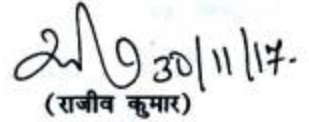 30/11/17.
(राजीव कुमार)